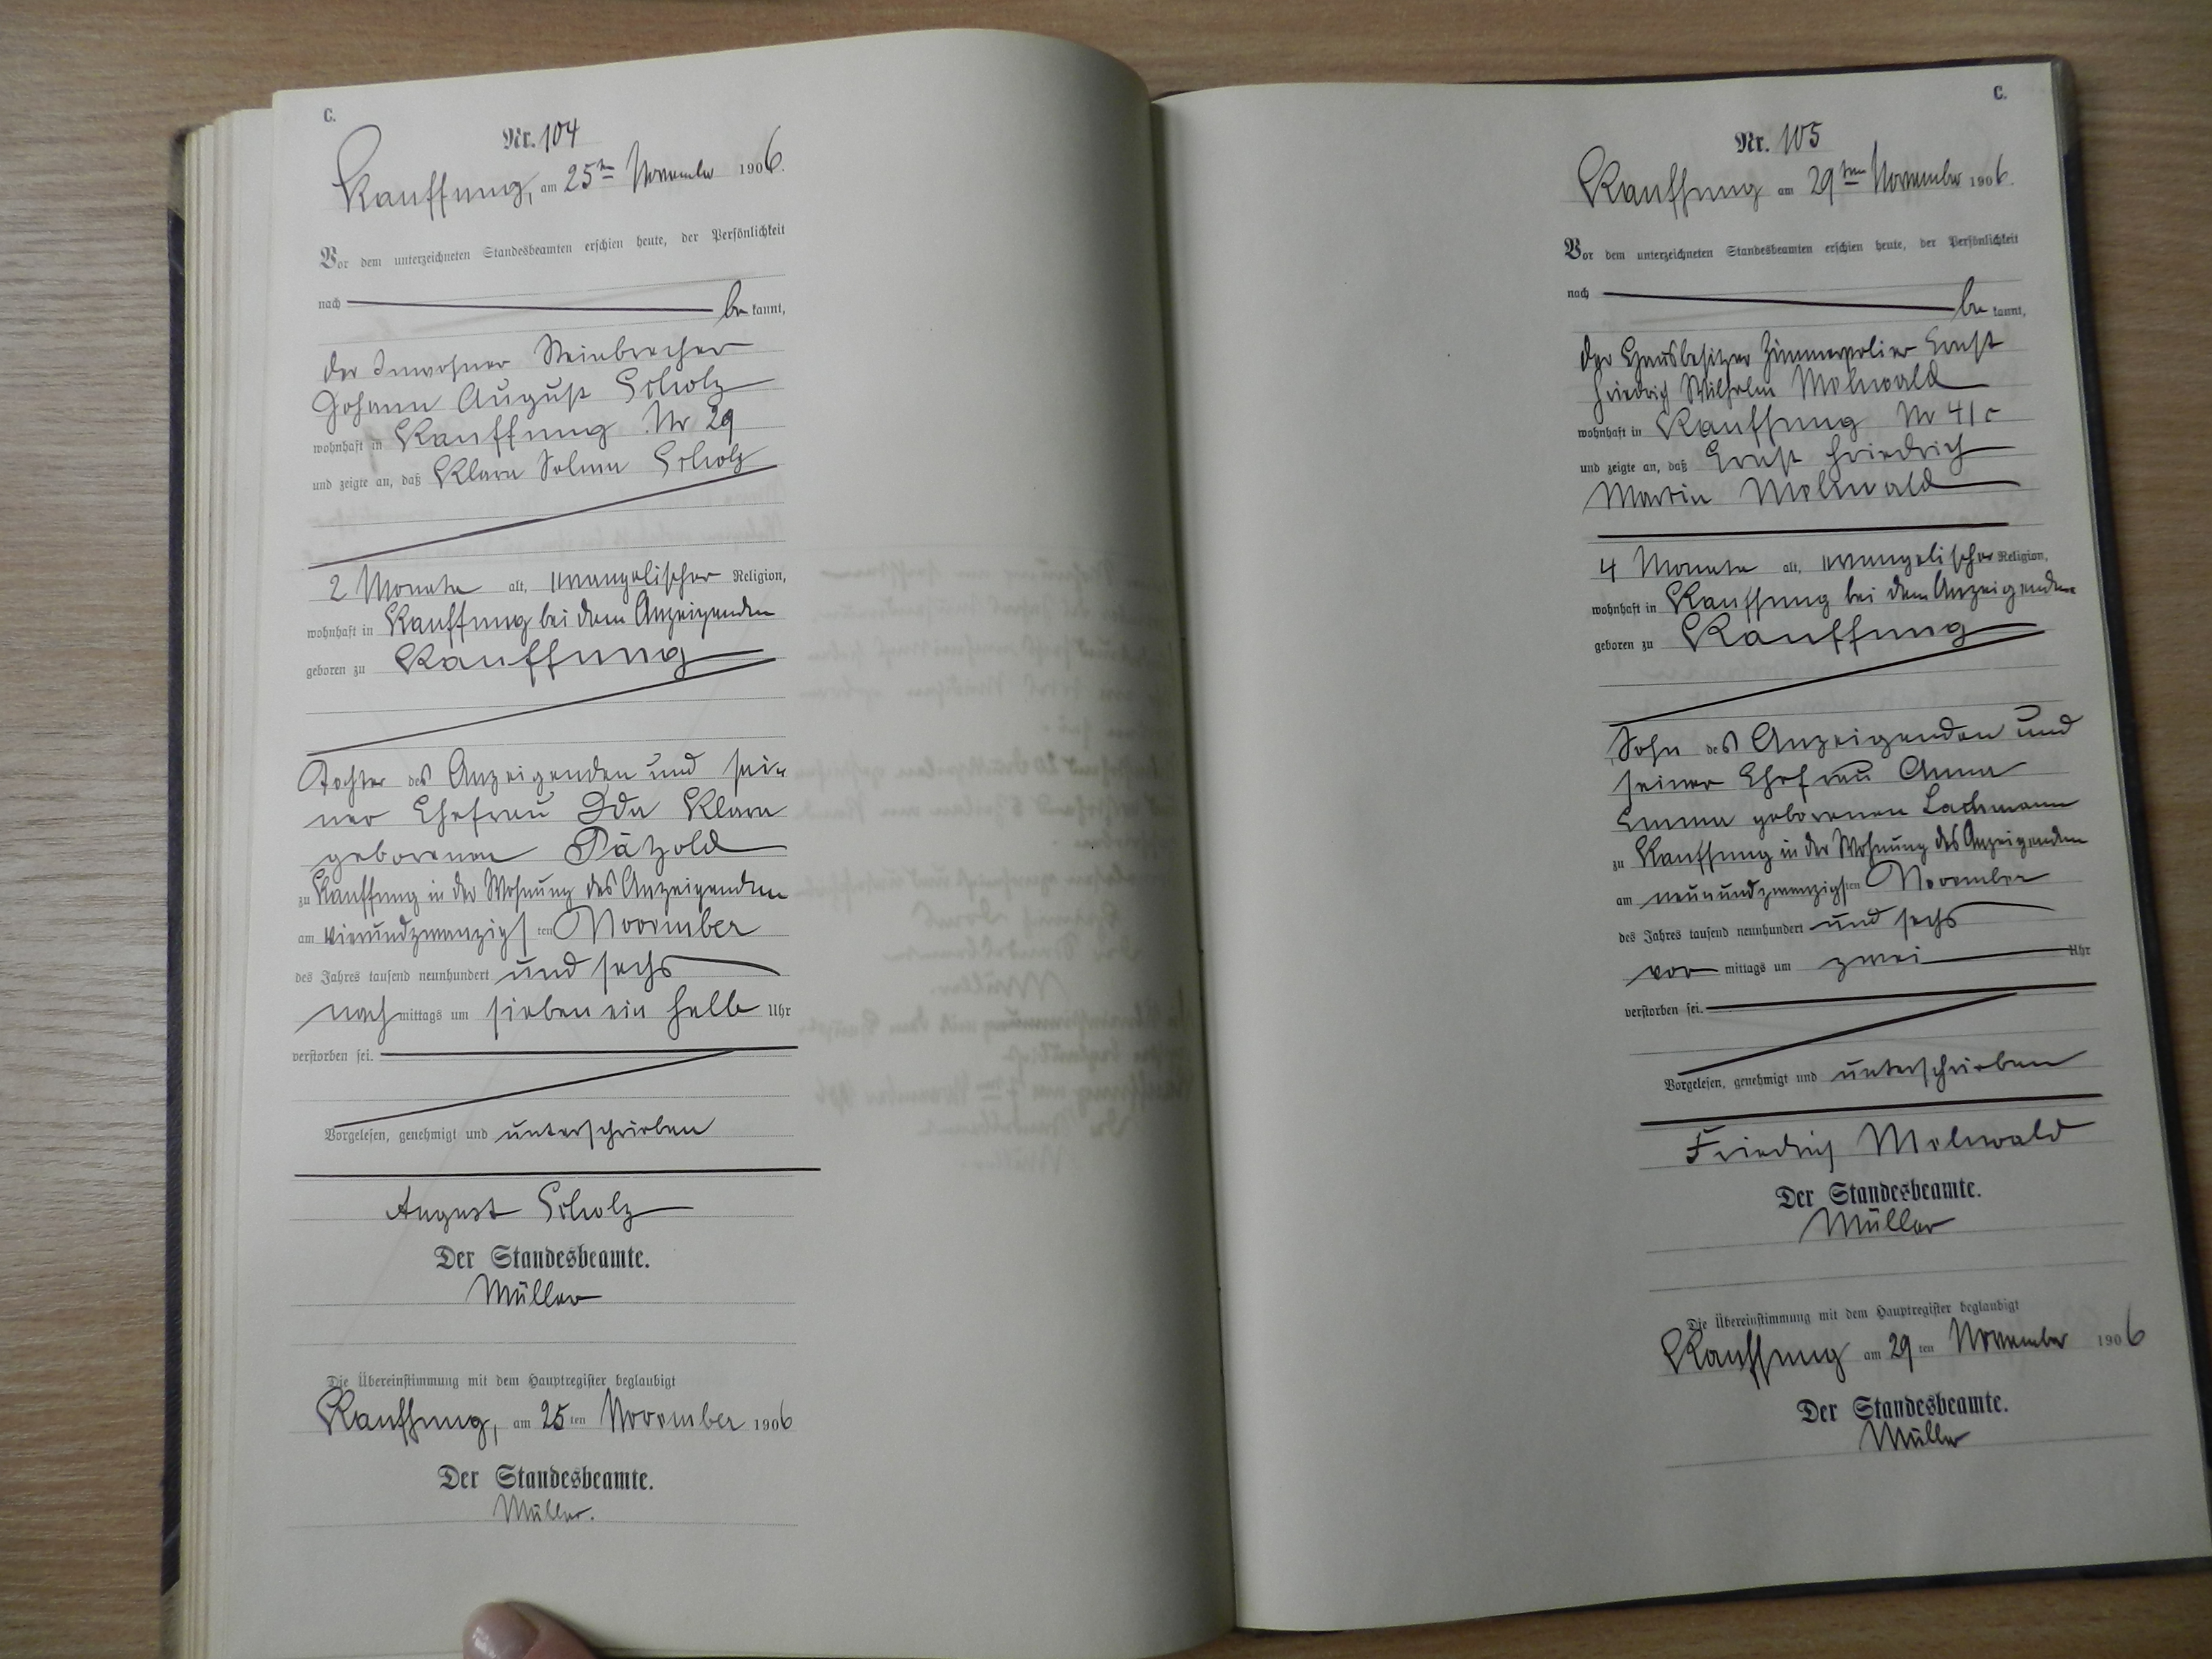 C.
Nr. 104
Kauffung, am 25ten November 1906.
Vor dem unterzeichneten Standesbeamten erschien heute, der Persönlichkeit
nach be kannt,
der Inwohner Steinbrecher
Johann August Scholz
wohnhaft in Kauffung Nr 29
und zeigte an, daß Klara Selma Scholz
2 Monate alt, evangelischer Religion,
wohnhaft in Kauffung bei dem Anzeigenden
geboren zu Kauffung
Tochter des Anzeigenden und sei-
ner Ehefrau Ida Klara
geborenen Pätzold
zu Kauffung in der Wohnung des Anzeigenden
am vierundzwanzigsten November
des Jahres tausend neunhundert und sechs
nach mittags um sieben ein halb Uhr
verstorben sei.
Vorgelesen, genehmigt und unterschrieben
August Scholz
Der Standesbeamte.
Müller
Die Übereinstimmung mit dem Hauptregister beglaubigt
Kauffung, am 25 ten November 1906
Der Standesbeamte.
Müller.
C.
Nr. 105
Kauffung am 29ten November 1906.
Vor dem unterzeichneten Standesbeamten erschien heute, der Persönlichkeit
nach be kannt,
der Hausbesitzer Zimmerpolier Ernst
Friedrich Wilhelm Molwald
wohnhaft in Kauffung Nr 41c
und zeigte an, daß Ernst Friedrich
Martin Molwald
4 Monate alt, evangelischer Religion,
wohnhaft in Kauffung bei dem Anzeigenden
geboren zu Kauffung
Sohn des Anzeigenden und
seiner Ehefrau Anna
Emma geborenen Lachmann
zu Kauffung in der Wohnung des Anzeigenden
am neunundzwanzigsten November
des Jahres tausend neunhundert und sechs
vor mittags um zwei Uhr
verstorben sei.
Vorgelesen, genehmigt und unterschrieben
Friedrich Molwald
Der Standesbeamte.
Müller
Die Übereinstimmung mit dem Hauptregister beglaubigt
Kauffung am 29 ten November 1906
Der Standesbeamte.
Müller